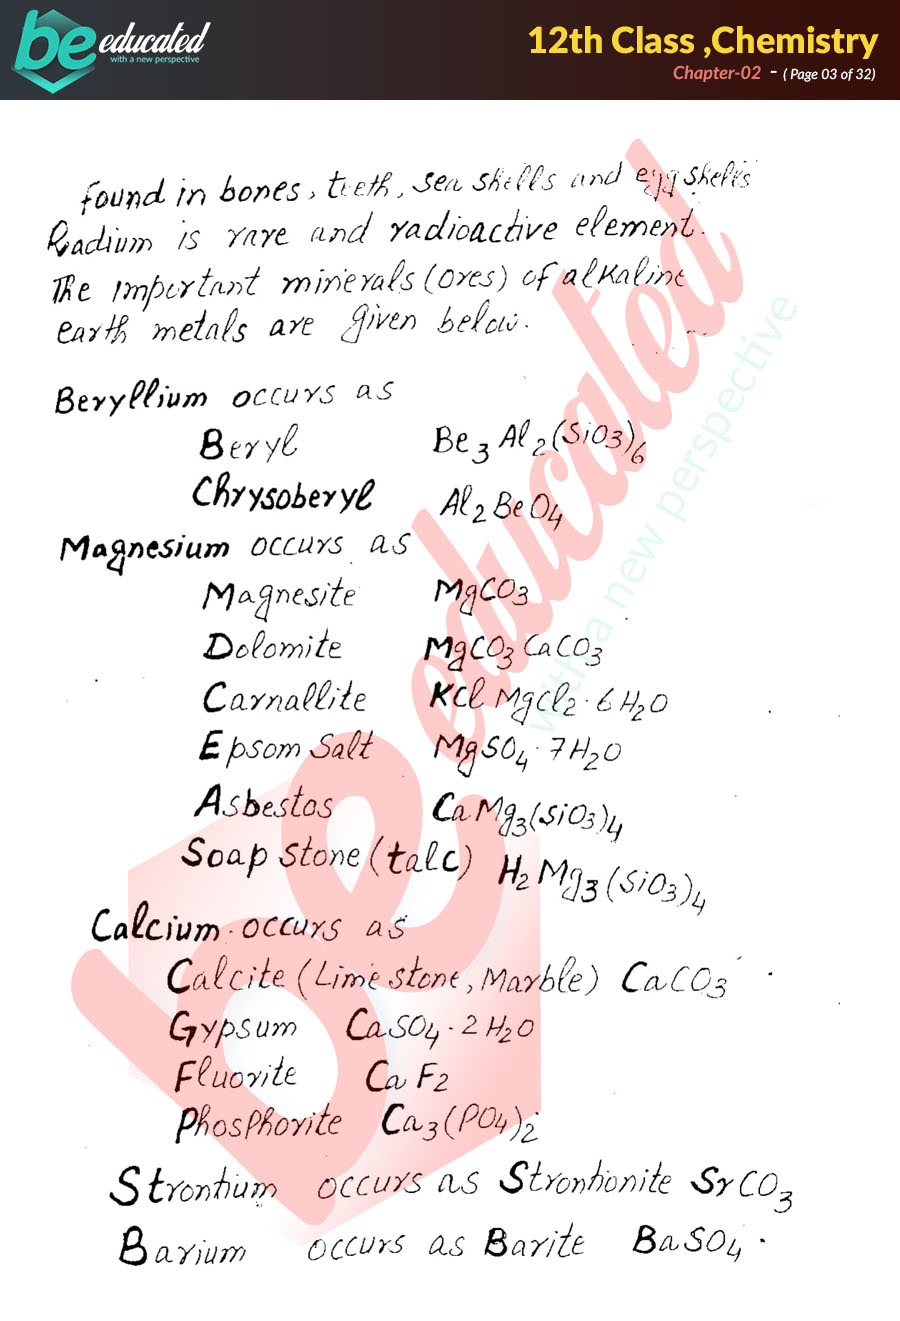 be educated
with a new perspective
12th Class ,Chemistry
Chapter-02 - ( Page 03 of 32)
found in bones, teeth, sea shells and egg shells
Radium is rare and radioactive element.
The important minerals (ores) of alkaline
earth metals are given below.
Beryllium occurs as
Beryl Be3 Al2 (SiO3)6
Chrysoberyl Al2 BeO4
Magnesium occurs as
Magnesite MgCO3
Dolomite MgCO3 CaCO3
Carnallite KCl MgCl2 · 6H2O
Epsom Salt MgSO4 · 7H2O
Asbestos CaMg3(SiO3)4
Soap Stone (talc) H2Mg3(SiO3)4
Calcium occurs as
Calcite (Lime stone, Marble) CaCO3
Gypsum CaSO4 · 2H2O
Fluorite CaF2
Phosphorite Ca3(PO4)2
Strontium occurs as Strontionite SrCO3
Barium occurs as Barite BaSO4 .
be educated
with a new perspective